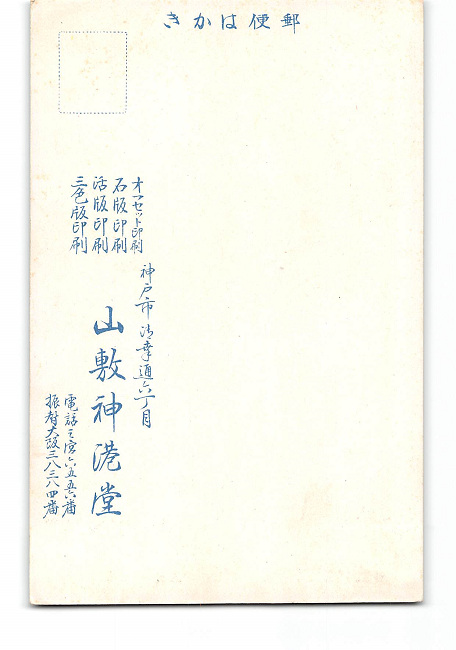 郵便はかき
オフセット印刷
石版印刷
活版印刷
三色版印刷
神戸市御幸通六丁目
山敷神港堂
電話三宮六五五六番
振替大阪三八三八四番